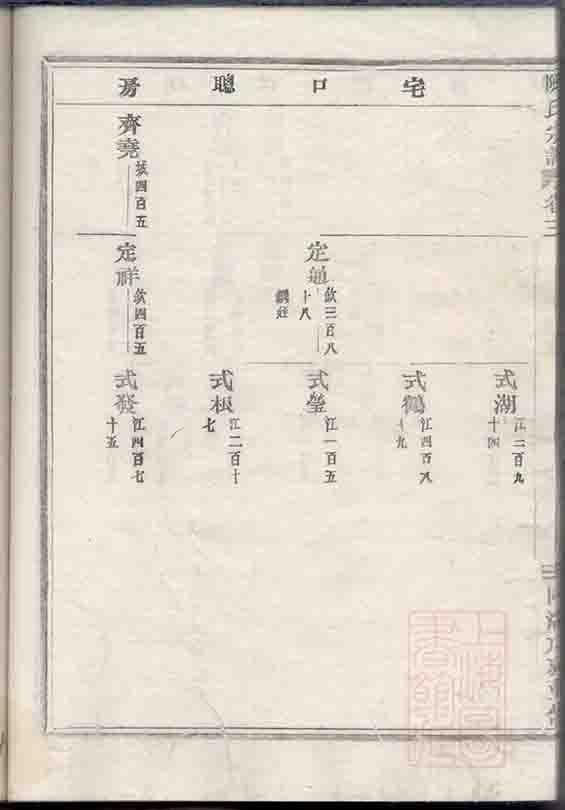 宅口聰房
齊堯
四百五
定通
欽三百八
十八
定祥
欽四百五
式湖
江二百九
十四
式鶴
江四百八
十九
式瑩
江一百五
式根
江二百十
七
式發
江四百七
十五
氏宗譜
卷三
上海圖
書館藏